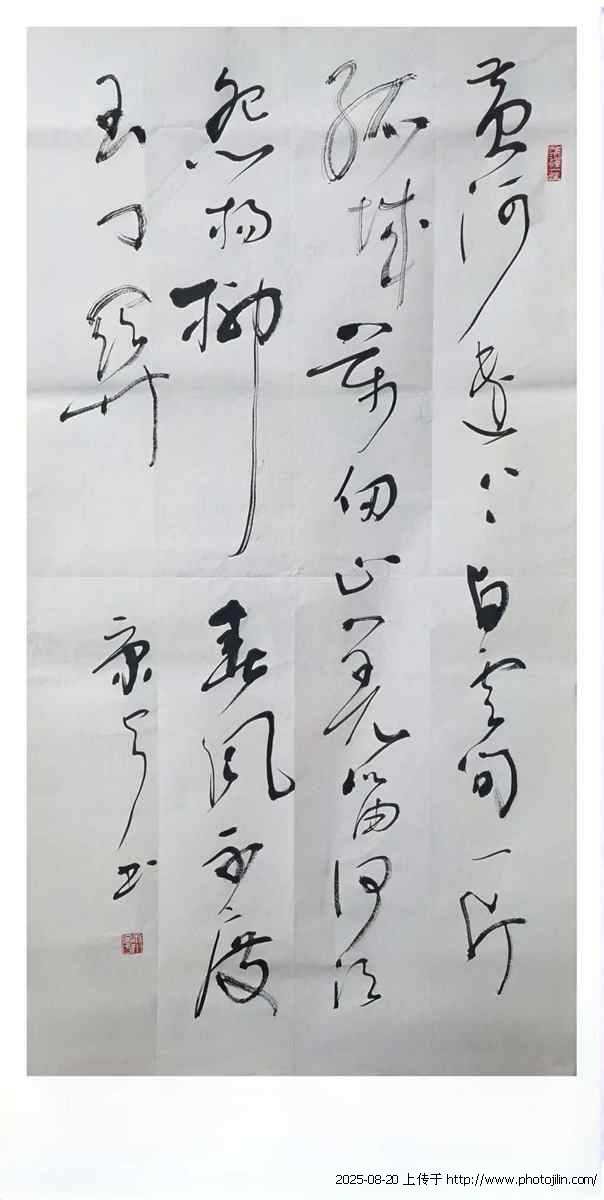 黄河遠上白雲间一片
孤城萬仞山羌笛何须
怨杨柳春风不度
玉门關
康 书
2025-08-20 上传于 http://www.photojilin.com/